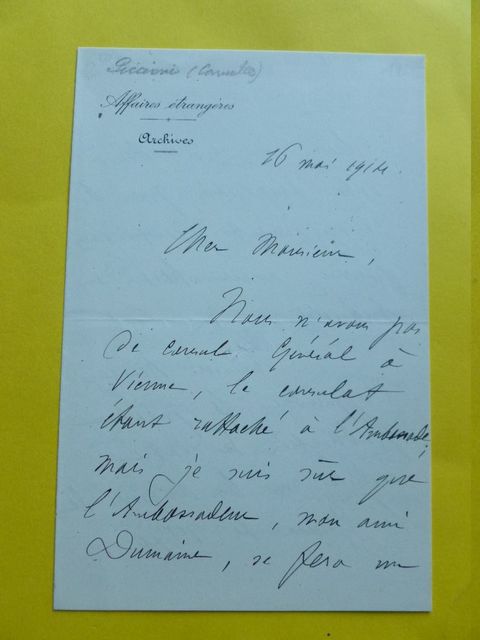 Piccioni (Camille)
Affaires étrangères
Archives
16 mai 1914.
Cher Monsieur,
Nous n'avons pas
de consul Général à
Vienne, le consulat
étant rattaché à l'Ambassade;
mais je suis sûr que
l'Ambassadeur, mon ami
Dumaine, se fera un